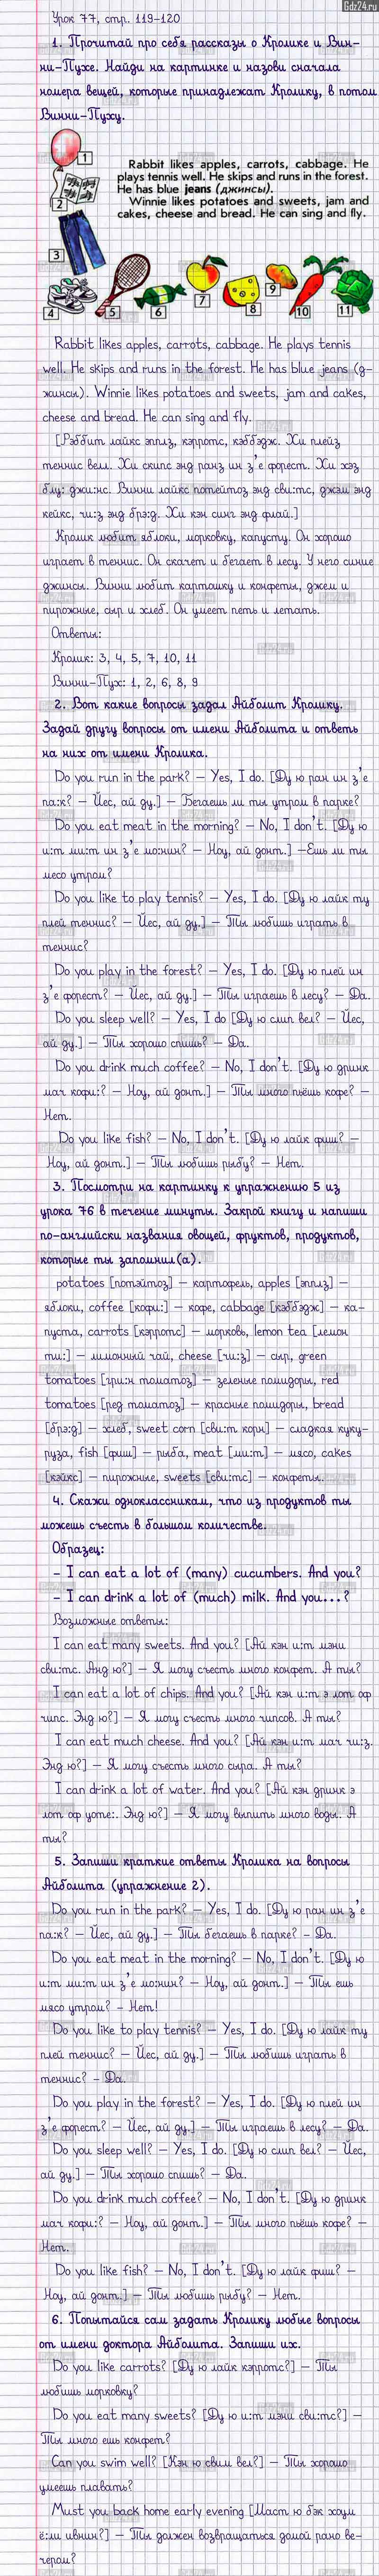 Gdz24.ru
Урок 77, стр. 119-120
1. Прочитай про себя рассказы о Кролике и Вин-
ни-Пухе. Найди на картинке и назови сначала
номера вещей, которые принадлежат Кролику, в потом
Винни-Пуху.
Rabbit likes apples, carrots, cabbage. He
plays tennis well. He skips and runs in the forest.
He has blue jeans (джинсы).
Winnie likes potatoes and sweets, jam and
cakes, cheese and bread. He can sing and fly.
1
2
3
4
5
6
7
8
9
10
11
Rabbit likes apples, carrots, cabbage. He plays tennis
well. He skips and runs in the forest. He has blue jeans (д-
жинсы). Winnie likes potatoes and sweets, jam and cakes,
cheese and bread. He can sing and fly.
[Рэббит лайкс эплз, кэротс, кэббэдж. Хи плейз
теннис вел. Хи скипс энд ранз ин з'е форест. Хи хэз
блу: джи:нс. Винни лайкс потейтоз энд сви:тс, джэм энд
кейкс, чи:з энд брэ:д. Хи кэн синг энд флай.]
Кролик любит яблоки, морковку, капусту. Он хорошо
играет в теннис. Он скачет и бегает в лесу. У него синие
джинсы. Винни любит картошку и конфеты, джем и
пирожные, сыр и хлеб. Он умеет петь и летать.
Ответы:
Кролик: 3, 4, 5, 7, 10, 11
Винни-Пух: 1, 2, 6, 8, 9
2. Вот какие вопросы задал Айболит Кролику.
Задай другу вопросы от имени Айболита и ответь
на них от имени Кролика.
Do you run in the park? – Yes, I do. [Ду ю ран ин з'е
па:к? – Йес, ай ду.] – Бегаешь ли ты утром в парке?
Do you eat meat in the morning? – No, I don't. [Ду ю
и:т ми:т ин з'е мо:нин? – Ноу, ай донт.] –Ешь ли ты
мясо утром?
Do you like to play tennis? – Yes, I do. [Ду ю лайк ту
плей теннис? – Йес, ай ду.] – Ты любишь играть в
теннис?
Do you play in the forest? – Yes, I do. [Ду ю плей ин
з'е форест? – Йес, ай ду.] – Ты играешь в лесу? – Да.
Do you sleep well? – Yes, I do [Ду ю слип вел? – Йес,
ай ду.] – Ты хорошо спишь? – Да.
Do you drink much coffee? – No, I don't. [Ду ю дринк
мач кофи:? – Ноу, ай донт.] – Ты много пьёшь кофе? –
Нет.
Do you like fish? – No, I don't. [Ду ю лайк фиш? –
Ноу, ай донт.] – Ты любишь рыбу? – Нет.
3. Посмотри на картинку к упражнению 5 из
урока 76 в течение минуты. Закрой книгу и напиши
по-английски названия овощей, фруктов, продуктов,
которые ты запомнил(а).
potatoes [потэйтоз] – картофель, apples [эплз] –
яблоки, coffee [кофи:] – кофе, cabbage [кэббэдж] – ка-
пуста, carrots [кэрротс] – морковь, lemon tea [лемон
ти:] – лимонный чай, cheese [чи:з] – сыр, green
tomatoes [гри:н томатоз] – зеленые помидоры, red
tomatoes [ред томатоз] – красные помидоры, bread
[брэ:д] – хлеб, sweet corn [сви:т корн] – сладкая куку-
руза, fish [фиш] – рыба, meat [ми:т] – мясо, cakes
[кэйкс] – пирожные, sweets [сви:тс] – конфеты.
4. Скажи одноклассникам, что из продуктов ты
можешь съесть в большом количестве.
Образец:
– I can eat a lot of (many) cucumbers. And you?
– I can drink a lot of (much) milk. And you...?
Возможные ответы:
I can eat many sweets. And you? [Ай кэн и:т мэни
сви:тс. Анд ю?] – Я могу съесть много конфет. А ты?
I can eat a lot of chips. And you? [Ай кэн и:т э лот оф
чипс. Энд ю?] – Я могу съесть много чипсов. А ты?
I can eat much cheese. And you? [Ай кэн и:т мач чи:з.
Энд ю?] – Я могу съесть много сыра. А ты?
I can drink a lot of water. And you? [Ай кэн дринк э
лот оф уоте:. Энд ю?] – Я могу выпить много воды. А
ты?
5. Запиши краткие ответы Кролика на вопросы
Айболита (упражнение 2).
Do you run in the park? – Yes, I do. [Ду ю ран ин з'е
па:к? – Йес, ай ду.] – Ты бегаешь в парке? – Да.
Do you eat meat in the morning? – No, I don't. [Ду ю
и:т ми:т ин з'е мо:нин? – Ноу, ай донт.] – Ты ешь
мясо утром? – Нет!
Do you like to play tennis? – Yes, I do. [Ду ю лайк ту
плей теннис? – Йес, ай ду.] – Ты любишь играть в
теннис? – Да.
Do you play in the forest? – Yes, I do. [Ду ю плей ин
з'е форест? – Йес, ай ду.] – Ты играешь в лесу? – Да.
Do you sleep well? – Yes, I do. [Ду ю слип вел? – Йес,
ай ду.] – Ты хорошо спишь? – Да.
Do you drink much coffee? – No, I don't. [Ду ю дринк
мач кофи:? – Ноу, ай донт.] – Ты много пьёшь кофе? –
Нет.
Do you like fish? – No, I don't. [Ду ю лайк фиш? –
Ноу, ай донт.] – Ты любишь рыбу? – Нет.
6. Попытайся сам задать Кролику любые вопросы
от имени доктора Айболита. Запиши их.
Do you like carrots? [Ду ю лайк кэрротс?] – Ты
любишь морковку?
Do you eat many sweets? [Ду ю и:т мэни сви:тс?] –
Ты много ешь конфет?
Can you swim well? [Кэн ю свим вел?] – Ты хорошо
умеешь плавать?
Must you back home early evening [Маст ю бэк хоум
ё:ли ивнин?] – Ты должен возвращаться домой рано ве-
чером?